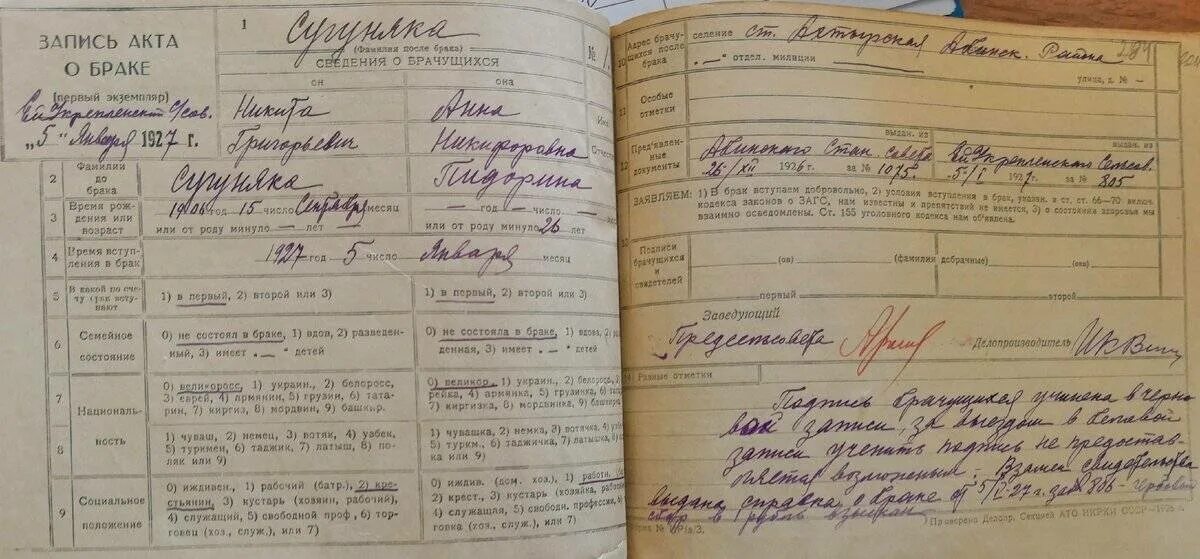 ЗАПИСЬ АКТА
О БРАКЕ
(первый экземпляр)
Укрепленск С/сов.
„5„ Января 1927 г.
1
Сугуняка
(Фамилия после брака)
№ 1
СВЕДЕНИЯ О БРАЧУЩИХСЯ
он она
Никита Анна
Григорьевич Никифоровна
2 Фамилии до брака Сугуняка Пидорина
3 Время рождения или возраст 1906 год 15 число Сентября месяц — год — число — месяц
или от роду минуло — лет или от роду минуло 26 лет
4 Время вступления в брак 1927 год 5 число Января месяц
5 В какой по счету брак вступают 1) в первый, 2) второй или 3) 1) в первый, 2) второй или 3)
6 Семейное состояние
0) не состоял в браке, 1) вдов, 2) разведенный, 3) имеет „—“ детей
0) не состояла в браке, 1) вдова, 2) разведенная, 3) имеет „—“ детей
7 Националь-
0) великоросс, 1) украин., 2) белоросс, 3) еврей, 4) армянин, 5) грузин, 6) татарин, 7) киргиз, 8) мордвин, 9) башкир.
0) великор., 1) украин., 2) белорос., 3) еврейка, 4) армянка, 5) грузинка, 6) 7) киргизка, 8) мордвинка, 9) башкирк
8 ность
1) чуваш, 2) немец, 3) вотяк, 4) узбек, 5) туркмен, 6) таджик, 7) латыш, 8) поляк или 9)
1) чувашка, 2) немка, 3) вотячка, 4) 5) туркм., 6) таджичка, 7) латышка, 8) или 9)
9 Социальное положение
0) иждивен., 1) рабочий (батр.), 2) крестьянин, 3) кустарь (хозяин, рабочий), 4) служащий, 5) свободной проф., 6) торговец (хоз., служ.), или 7)
0) иждив. (дом. хоз.), 1) работн. 2) крест., 3) кустарь (хозяйка, рабочий) 4) служащая, 5) свободн. профессии, 6) (хоз., служ.), или 7)
10 Адрес брачущихся после брака
селение ст. Ахтырская Абинск. Района 284
„—“ отдел. милиции улица, д. № —
11 Особые отметки
12 Пред'явленные документы
выдан. из выдан. из
Абинского Стан. Совета Укрепленского Сельсов.
26-/XII 1926 г. за № 1075. 5-/I 1927 г. за № 805
ЗАЯВЛЯЕМ: 1) В брак вступаем добровольно, 2) условия вступления в брак, указан. в ст. ст. 66—70 включ.
кодекса законов о ЗАГС, нам известны и препятствий не имеется, 3) о состоянии здоровья мы
взаимно осведомлены. Ст. 155 уголовного кодекса нам об'явлена.
Подписи брачущихся и свидетелей
(он) (фамилии добрачные) (она)
первый второй
Заведующий
Предсельсовета Делопроизводитель
Разные отметки
Подпись брачущихся учинена в черно
вой записи, за выездом в беловой
записи учинить подпись не предостав-
ляется возможным. Взамен свидетельства
выдана справка о браке от 5/I-27 г. за № 806
сбор в рубль взыскан
Проверено Делопр. Секцией АТО НКРКИ СССР—1926 г.